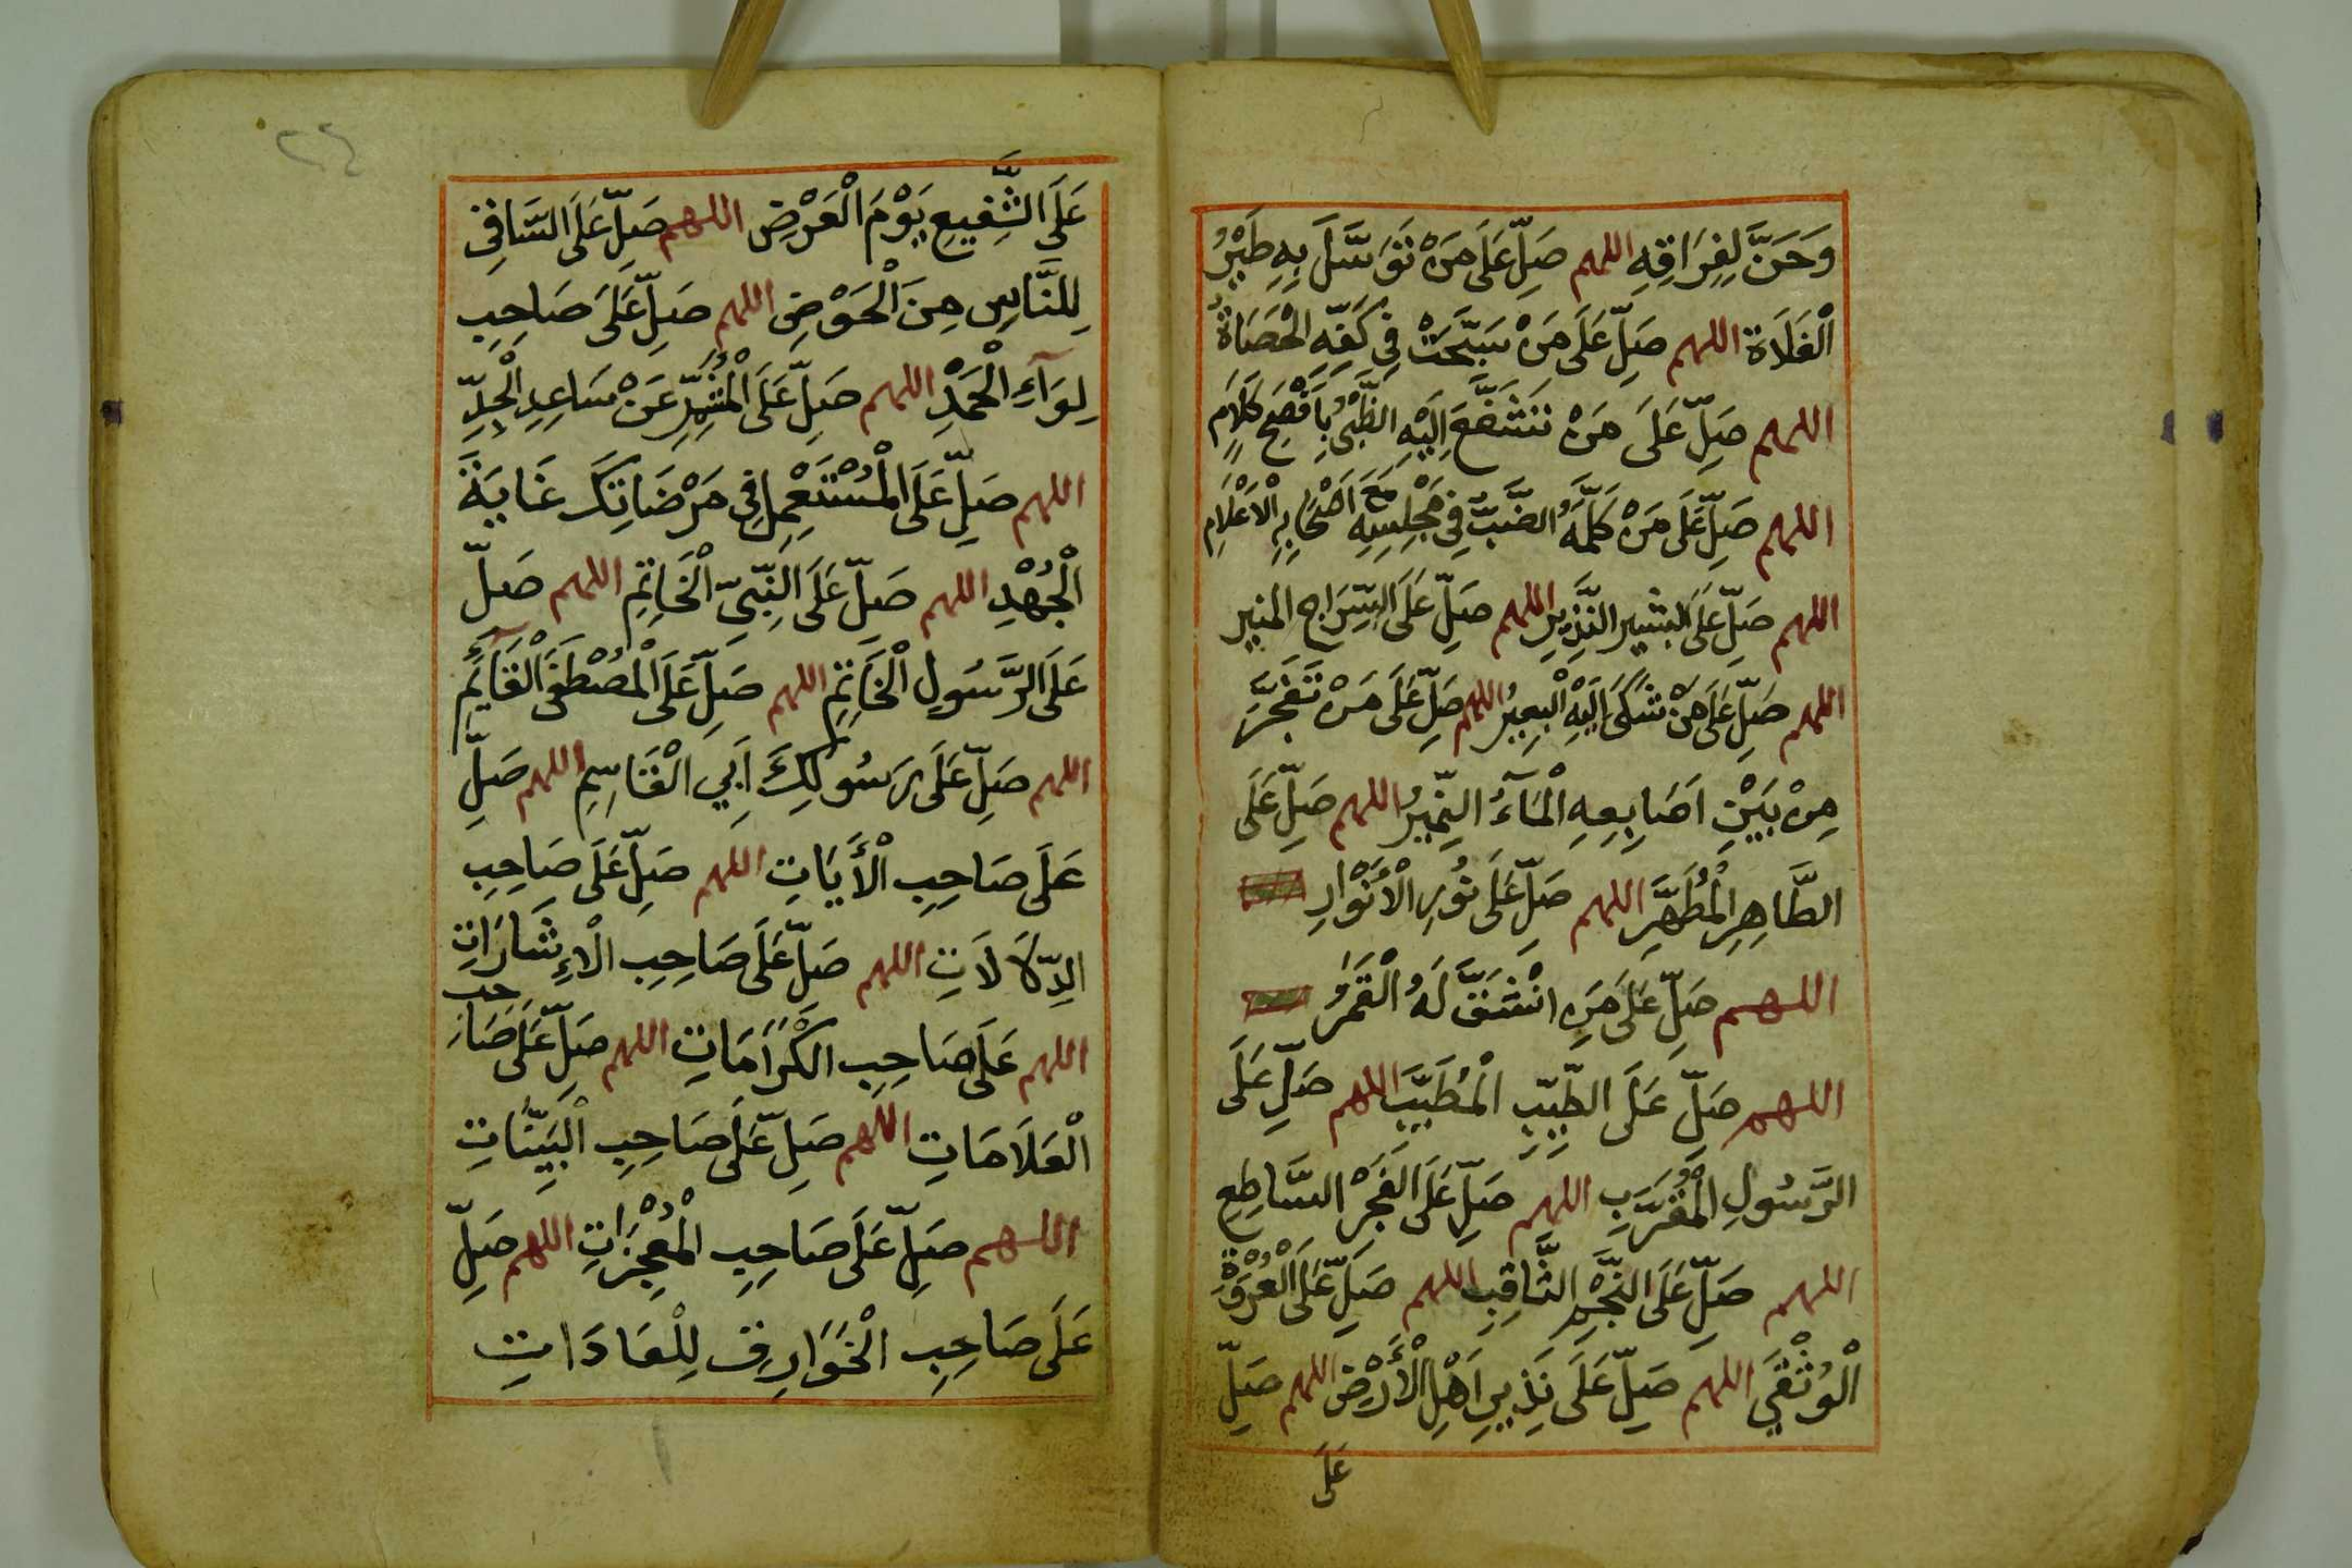 وَحَنَّ لِفِرَاقِهِ اللهم صَلِّ عَلَى مَنْ تَوَسَّلَ بِهِ طَيْرُ
الْفَلَاةِ اللهم صَلِّ عَلَى مَنْ سَبَّحَتْ فِي كَفِّهِ الْحَصَاةُ
اللهم صَلِّ عَلَى مَنْ تَشَفَّعَ اِلَيْهِ الظَّبْيُ بِاَفْصَحِ كَلَامٍ
اللهم صَلِّ عَلَى مَنْ كَلَّمَهُ الضَّبُّ فِي مَجْلِسِهِ مَعَ اَصْحَابِهِ الْاَعْلَامِ
اللهم صَلِّ عَلَى الْبَشِيرِ النَّذِيرِ اللهم صَلِّ عَلَى السِّرَاجِ المنير
اللهم صَلِّ عَلَى مَنْ شَكَى اِلَيْهِ الْبَعِيرُ اللهم صَلِّ عَلَى مَنْ تَفَجَّرَ
مِنْ بَيْنِ اَصَابِعِهِ الْمَآءُ النَّمِيرُ اللهم صَلِّ عَلَى
الطَّاهِرِ الْمُطَهَّرِ اللهم صَلِّ عَلَى نُورِ الْأَنْوَارِ
اللهم صَلِّ عَلَى مَنِ انْشَقَّ لَهُ الْقَمَرُ
اللهم صَلِّ عَلَى الطَّيِّبِ الْمُطَيَّبِ اللهم صَلِّ عَلَى
الرَّسُولِ الْمُقَرَّبِ اللهم صَلِّ عَلَى الْفَجْرِ السَّاطِعِ
اللهم صَلِّ عَلَى النَّجْمِ الثَّاقِبِ اللهم صَلِّ عَلَى الْعُرْوَةِ
الْوُثْقَي اللهم صَلِّ عَلَى نَذِيرِ اَهْلِ الْأَرْضِ اللهم صَلِّ
عَلَى
٢٤
عَلَى الشَّفِيعِ يَوْمَ الْعَرْضِ اللهم صَلِّ عَلَى السَّاقِي
لِلنَّاسِ مِنَ الْحَوْضِ اللهم صَلِّ عَلَى صَاحِبِ
لِوَآءِ الْحَمْدِ اللهم صَلِّ عَلَى الْمُشَمِّرِ عَنْ سَاعِدِ الْجِدِّ
اللهم صَلِّ عَلَى الْمُسْتَعْمِلِ فِي مَرْضَاتِكَ غَايَةَ
الْجُهْدِ اللهم صَلِّ عَلَى النَّبِيِّ الْخَاتِمِ اللهم صَلِّ
عَلَى الرَّسُولِ الْخَاتِمِ اللهم صَلِّ عَلَى الْمُصْطَفَى الْقَآئِمِ
اللهم صَلِّ عَلَى رَسُولِكَ اَبِي الْقَاسِمِ اللهم صَلِّ
عَلَى صَاحِبِ الْأَيَاتِ اللهم صَلِّ عَلَى صَاحِبِ
الدِّلَالَاتِ اللهم صَلِّ عَلَى صَاحِبِ الْاِشَارَاتِ
اللهم عَلَى صَاحِبِ الْكَرَامَاتِ اللهم صَلِّ عَلَى صَاحِبِ
الْعَلَامَاتِ اللهم صَلِّ عَلَى صَاحِبِ الْبَيِّنَاتِ
اللهم صَلِّ عَلَى صَاحِبِ الْمُعْجِزَاتِ اللهم صَلِّ
عَلَى صَاحِبِ الْخَوَارِقِ لِلْعَادَاتِ